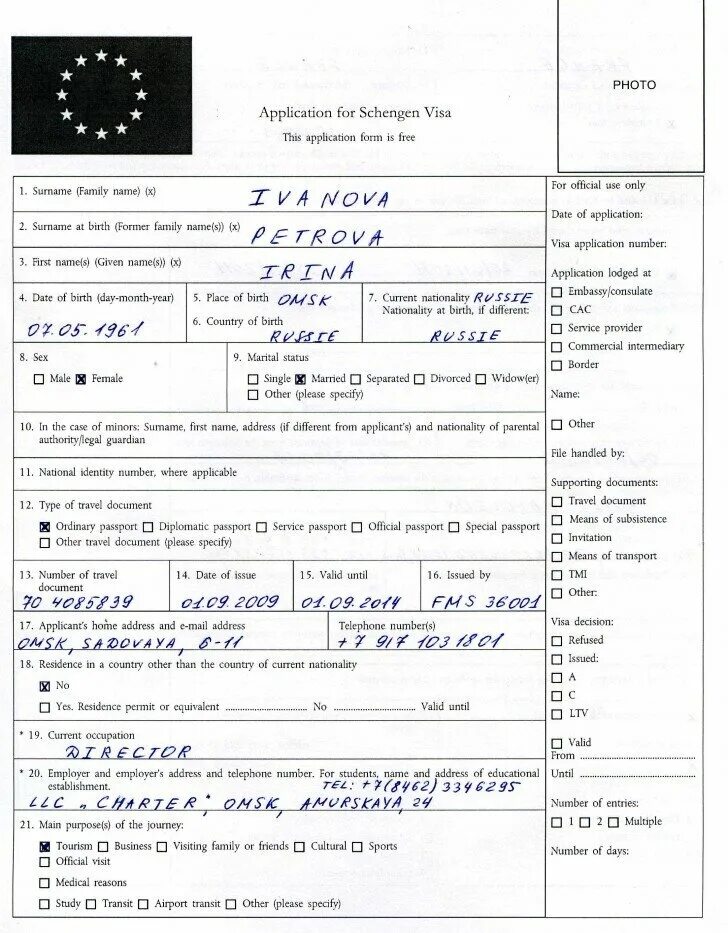 PHOTO
Application for Schengen Visa
This application form is free
1. Surname (Family name) (x)
IVANOVA
2. Surname at birth (Former family name(s)) (x)
PETROVA
3. First name(s) (Given name(s)) (x)
IRINA
4. Date of birth (day-month-year)
07.05.1961
5. Place of birth OMSK
6. Country of birth
RUSSIE
7. Current nationality RUSSIE
Nationality at birth, if different:
RUSSIE
8. Sex
Male Female
9. Marital status
Single Married Separated Divorced Widow(er)
Other (please specify)
10. In the case of minors: Surname, first name, address (if different from applicant's) and nationality of parental
authority/legal guardian
11. National identity number, where applicable
12. Type of travel document
Ordinary passport Diplomatic passport Service passport Official passport Special passport
Other travel document (please specify)
13. Number of travel
document
70 4085839
14. Date of issue
01.09.2009
15. Valid until
01.09.2014
16. Issued by
FMS 36001
17. Applicant's home address and e-mail address
OMSK, SADOVAYA, 6-11
Telephone number(s)
+7 917 1031801
18. Residence in a country other than the country of current nationality
No
Yes. Residence permit or equivalent .......................... No .......................... Valid until
* 19. Current occupation
DIRECTOR
* 20. Employer and employer's address and telephone number. For students, name and address of educational
establishment. TEL: +7(8462) 3346295
LLC „CHARTER", OMSK, AMURSKAYA, 24
21. Main purpose(s) of the journey:
Tourism Business Visiting family or friends Cultural Sports
Official visit
Medical reasons
Study Transit Airport transit Other (please specify)
For official use only
Date of application:
Visa application number:
Application lodged at
Embassy/consulate
CAC
Service provider
Commercial intermediary
Border
Name:
Other
File handled by:
Supporting documents:
Travel document
Means of subsistence
Invitation
Means of transport
TMI
Other:
Visa decision:
Refused
Issued:
A
C
LTV
Valid
From ..........................
Until ..........................
Number of entries:
1 2 Multiple
Number of days: